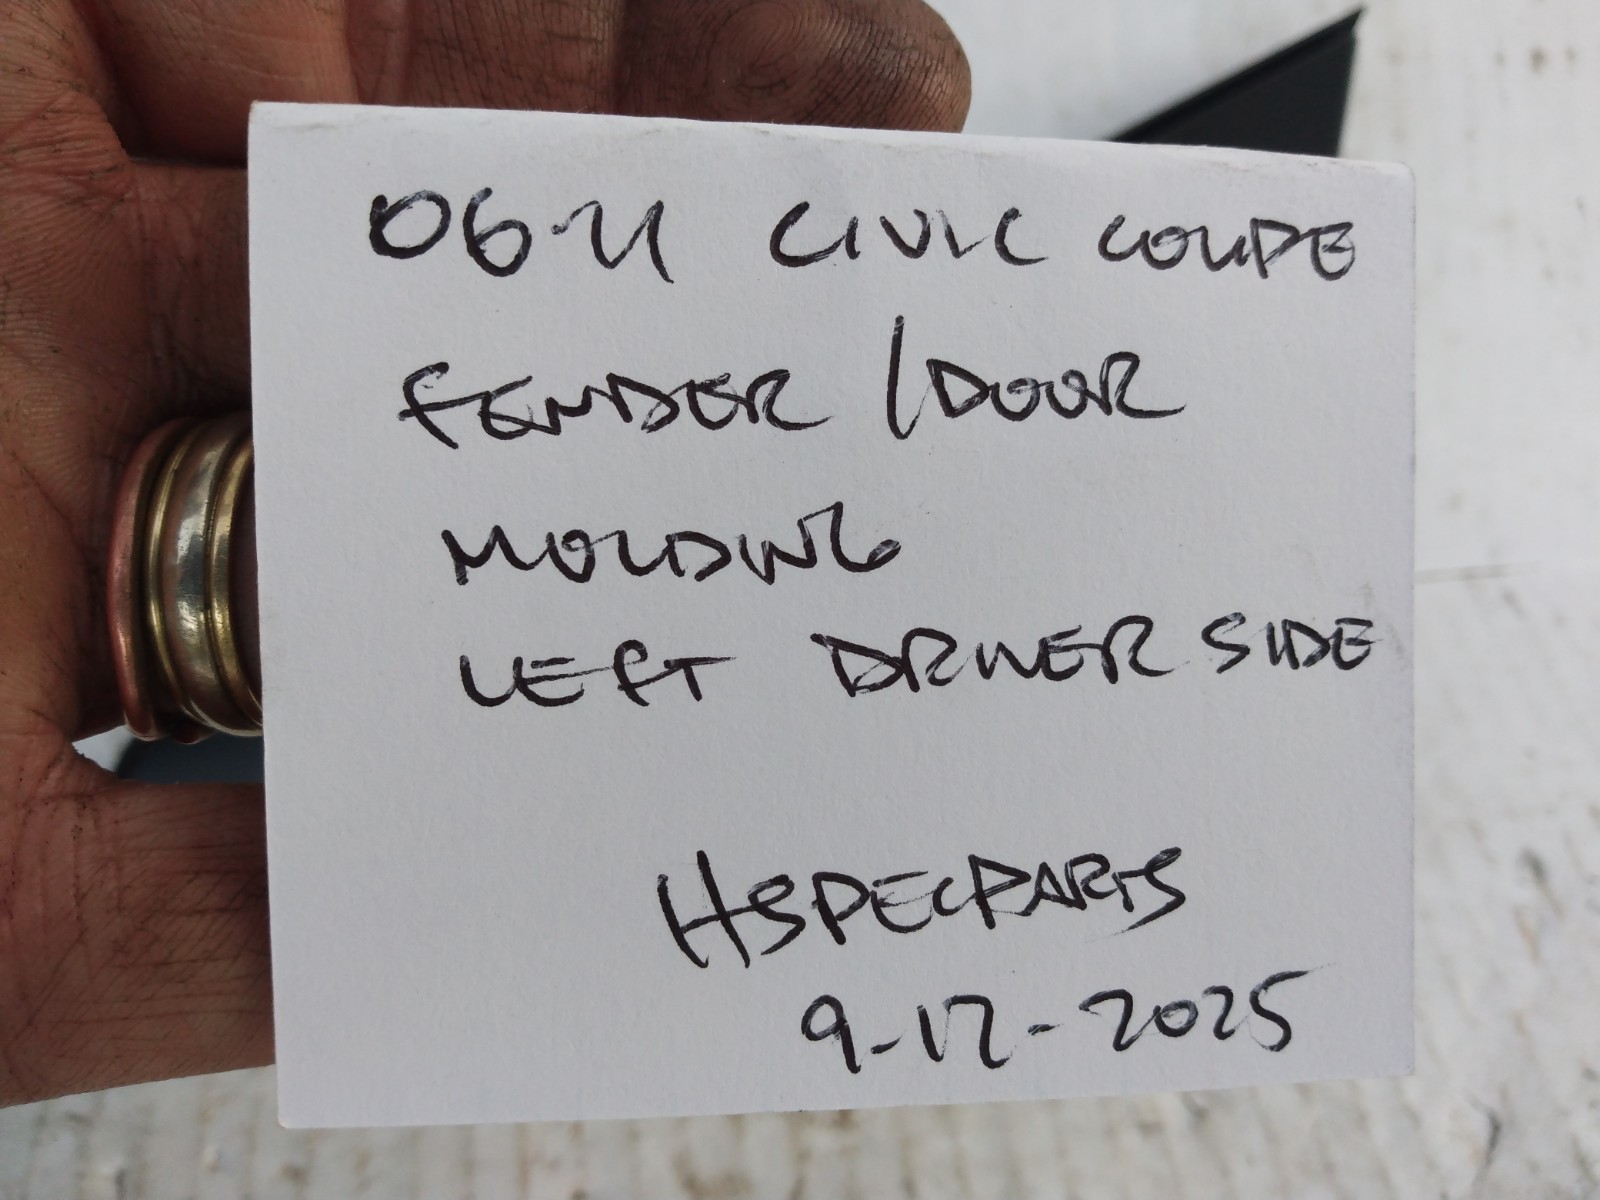 06-11 CIVIC COUPE
FENDER / DOOR
MOLDING
LEFT DRIVER SIDE
HSPECPARTS
9-12-2025